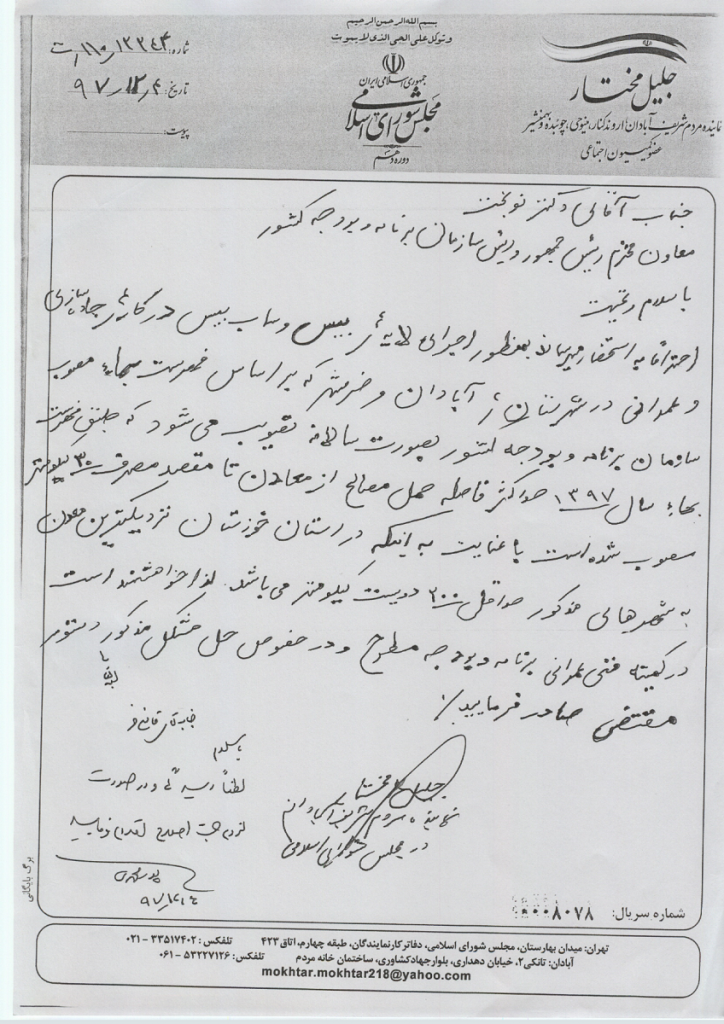 بسم الله الرحمن الرحیم
و توکل علی الحی الذی لا یموت
جمهوری اسلامی ایران
مجلس شورای اسلامی
دوره دهم
جلیل مختار
نماینده مردم شریف آبادان، اروندکنار، مینوحی، چوئبده و بهمنشیر
عضو کمیسیون اجتماعی
شماره:
تاریخ: ۹۷/۱۲/۴
پیوست:
جناب آقای دکتر نوبخت
معاون محترم رئیس جمهور و رئیس سازمان برنامه و بودجه کشور
با سلام و تحیت
احتراماً به استحضار میرساند بمنظور اجرای لایه های بیس و ساب بیس در کارهای جاده سازی
و عمرانی در شهرستان های آبادان و خرمشهر که بر اساس فهرست بهاء مصوب
سازمان برنامه و بودجه کشور بصورت سالانه تصویب می شود که طبق فهرست
بهاء سال ۱۳۹۷ حداکثر فاصله حمل مصالح از معادن تا مقصد مصرف ۳۰ کیلومتر
مصوب شده است با عنایت به اینکه در استان خوزستان نزدیکترین معدن
به شهرهای مذکور حداقل ۲۰۰ دویست کیلومتر می باشد. لذا خواهشمند است
در کمیته فنی عمرانی برنامه و بودجه مطرح و در خصوص حل مشکل مذکور دستور
مقتضی صادر فرمایید.
جلیل مختار
نماینده مردم شریف آبادان
در مجلس شورای اسلامی
جناب آقای قانع فر
با سلام
لطفاً بررسی و در صورت
لزوم جهت اصلاح اقدام فرمایید
۹۷/۱۲/۴
برگ بایگانی
شماره سریال: ۰۰۰۸۰۷۸
تهران: میدان بهارستان، مجلس شورای اسلامی، دفاتر کار نمایندگان، طبقه چهارم، اتاق ۴۲۳ تلفکس: ۳۳۵۱۷۴۰۲ - ۰۲۱
آبادان: تانکی۲، خیابان دهداری، بلوار جهاد کشاورزی، ساختمان خانه مردم تلفکس: ۵۳۲۲۷۱۲۶ - ۰۶۱
mokhtar.mokhtar218@yahoo.com